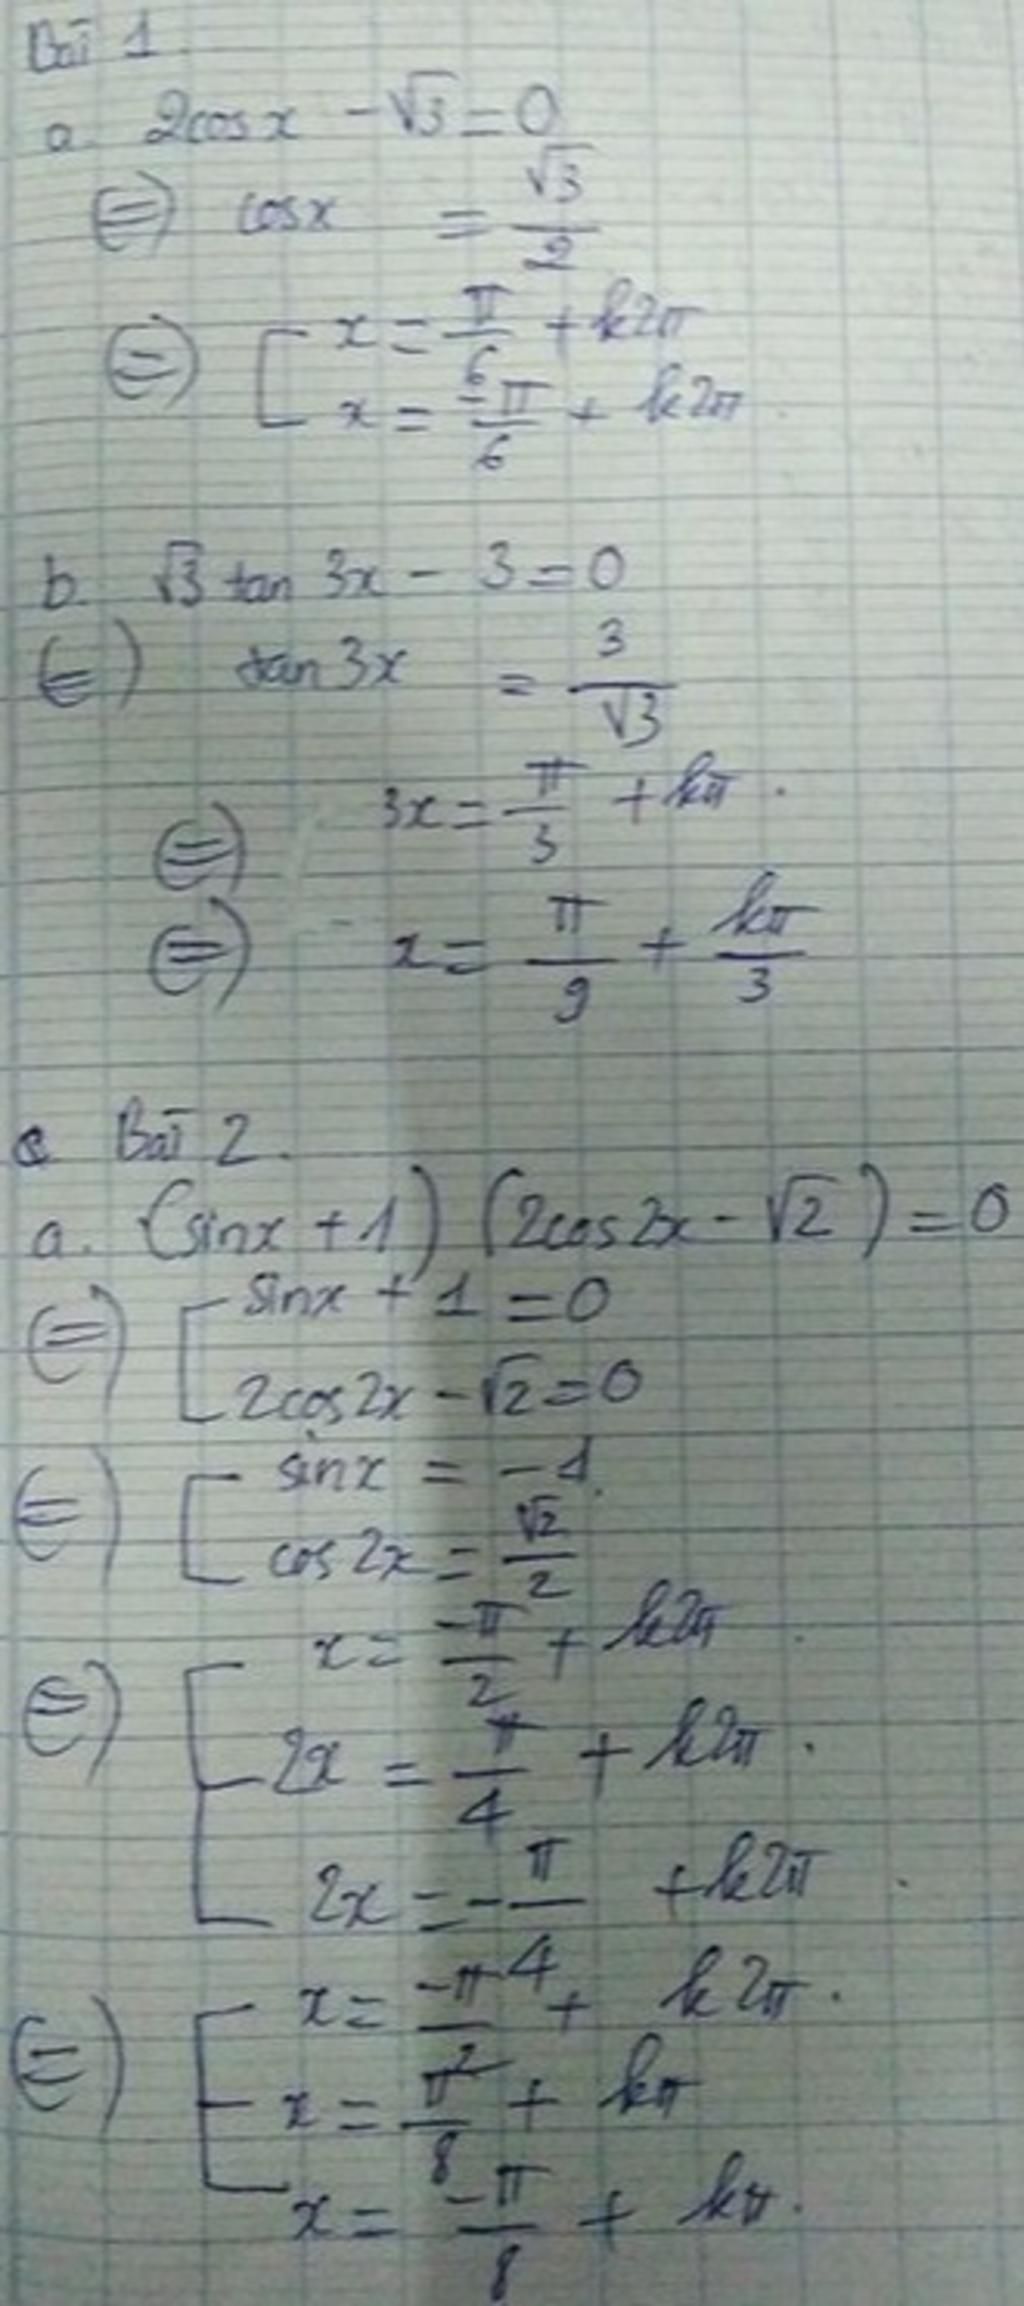 Bài 1.
a. 2cosx - √3 = 0
⇔ cosx = √3/2
⇔ [ x = π/6 + k2π
x = -π/6 + k2π.
b. √3 tan 3x - 3 = 0
⇔ tan 3x = 3/√3
⇔ 3x = π/3 + kπ.
⇔ x = π/9 + kπ/3
Bài 2.
a. (sinx + 1) (2cos2x - √2) = 0
⇔ [ sinx + 1 = 0
2cos2x - √2 = 0
⇔ [ sinx = -1
cos2x = √2/2
⇔ [ x = -π/2 + k2π
2x = π/4 + k2π.
2x = -π/4 + k2π.
⇔ [ x = -π/2 + k2π.
x = π/8 + kπ
x = -π/8 + kπ.